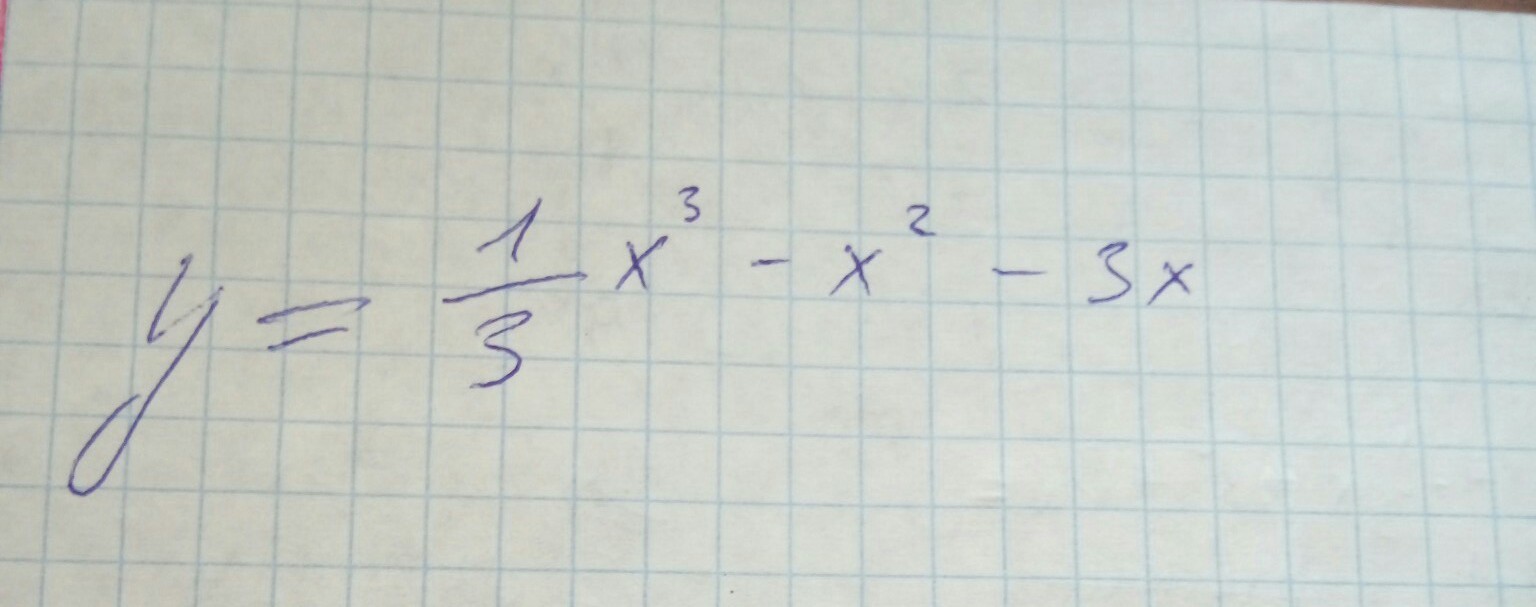 y = \frac{1}{3} x^3 - x^2 - 3x